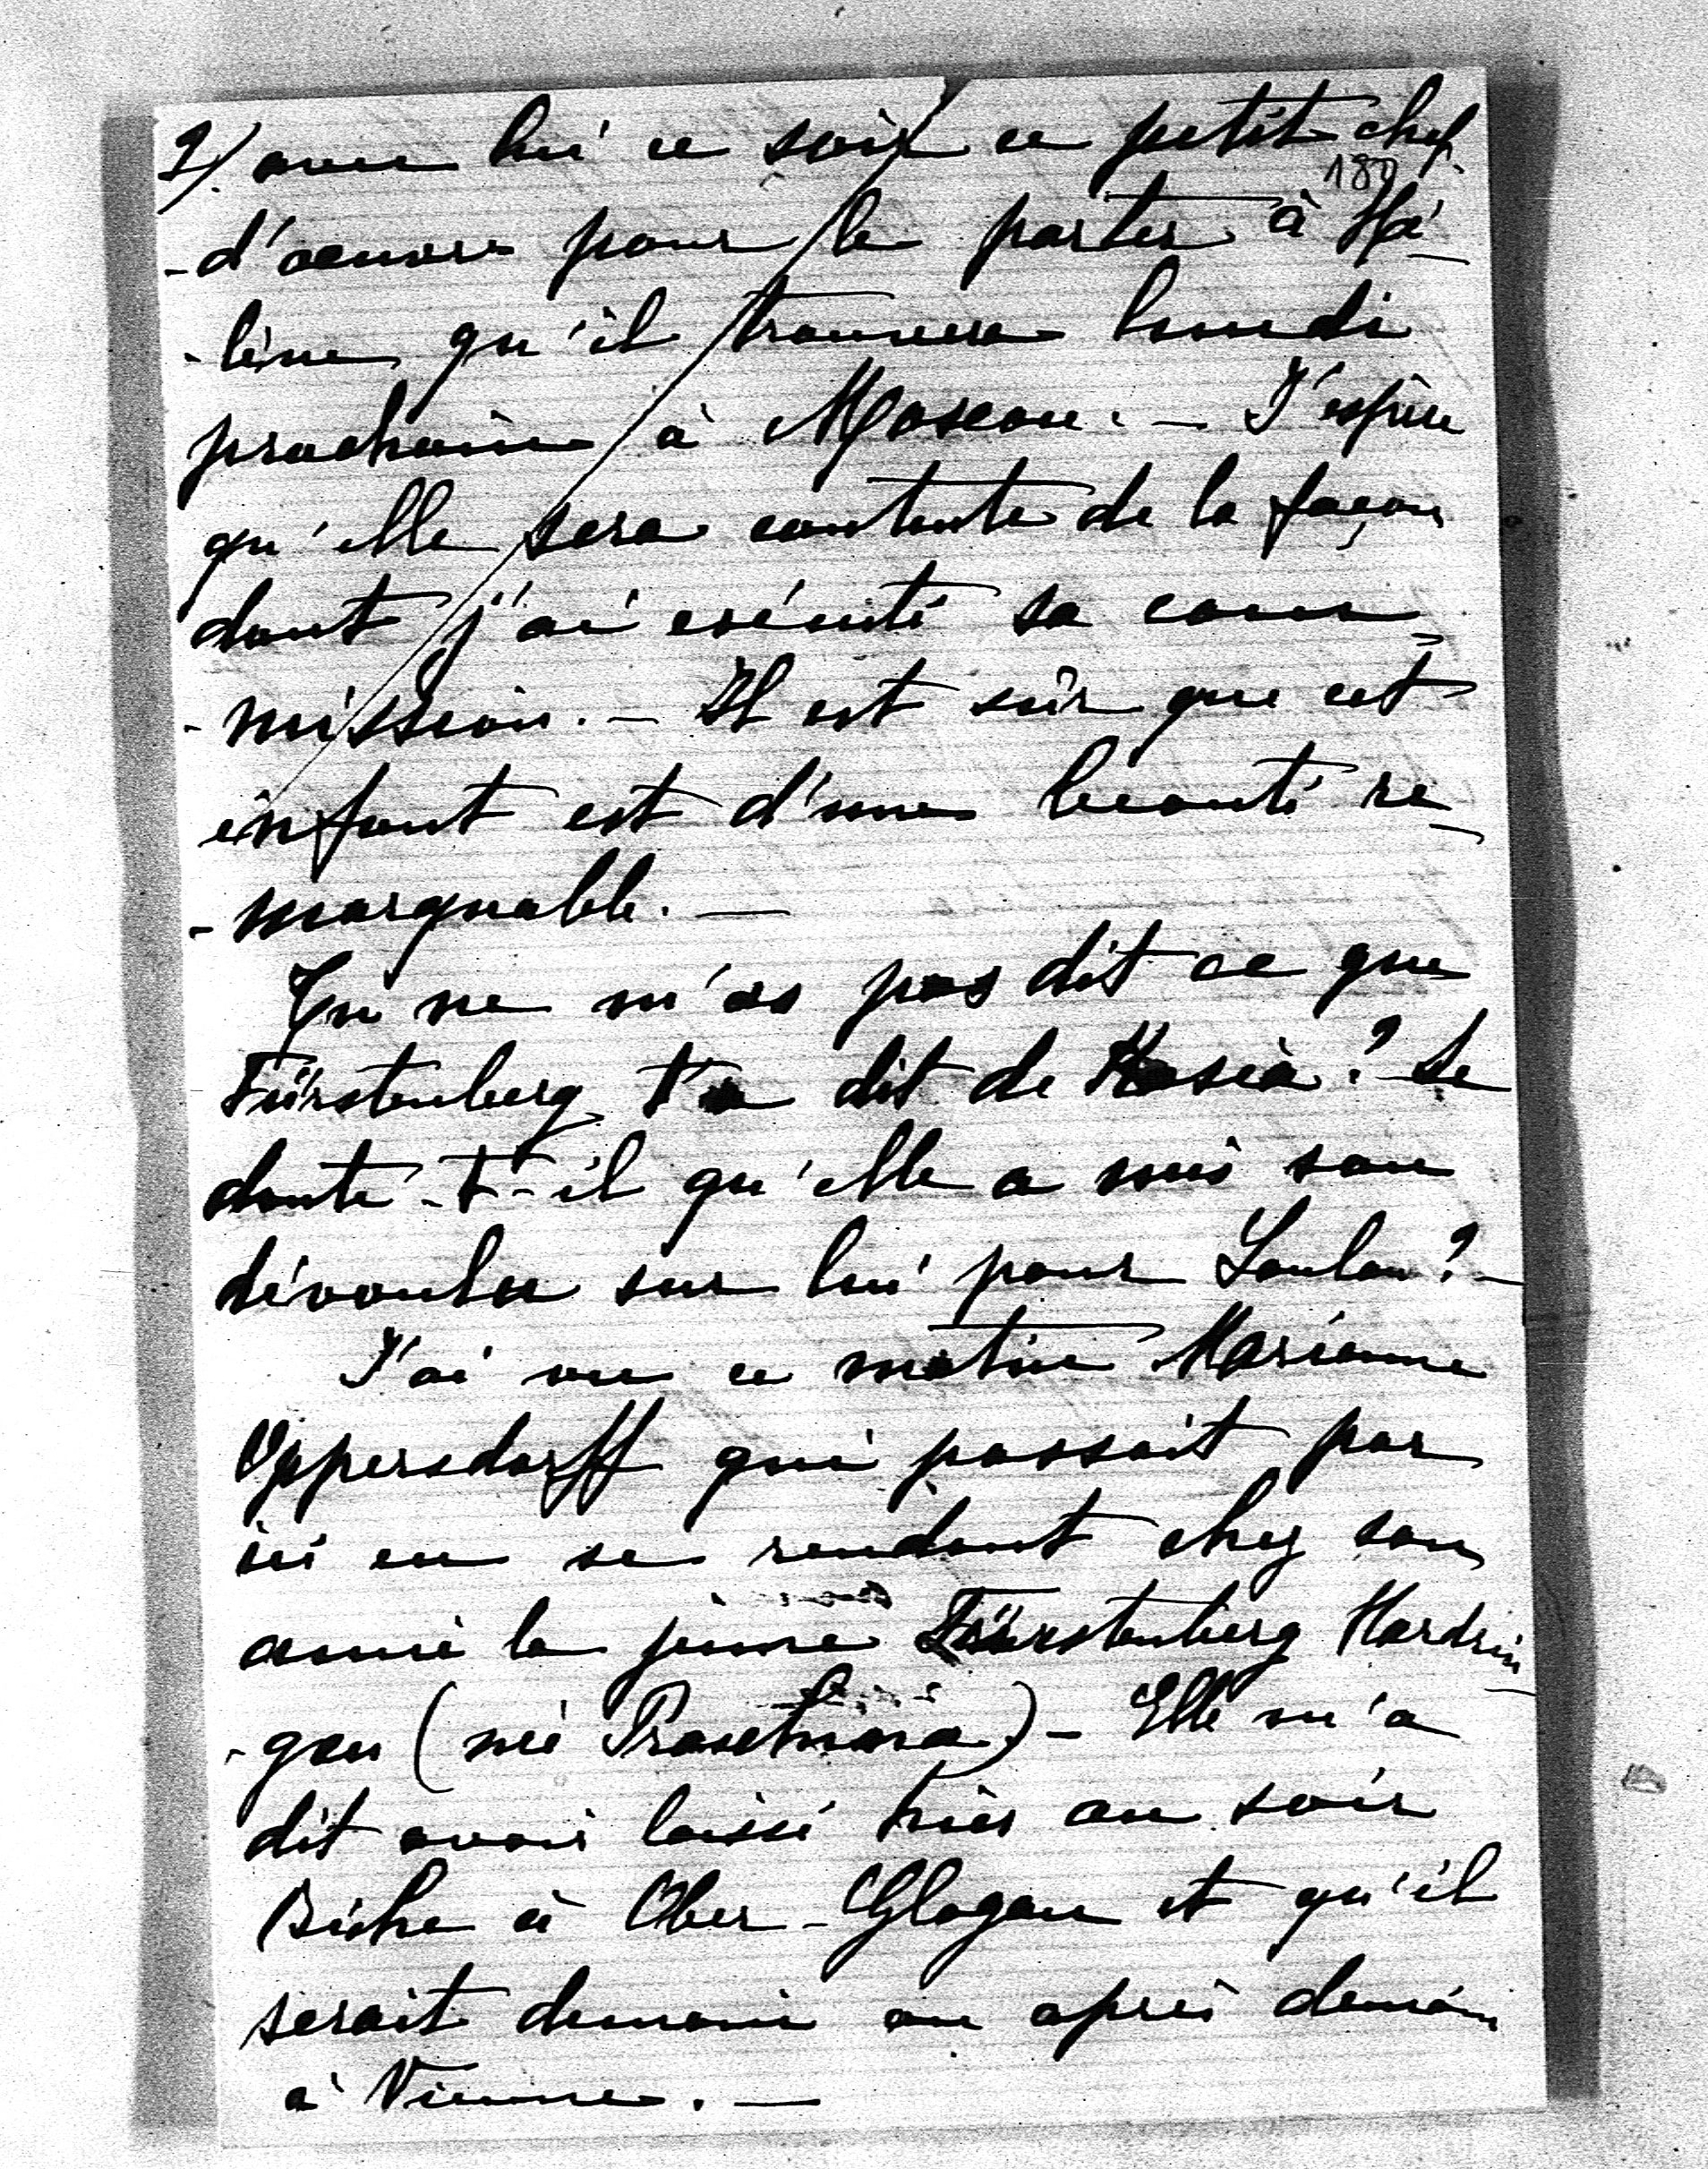 2/ avec lui ce soir ce petit chef
180
-d'oeuvre pour le porter à Hé-
-lène qu'il trouvera lundi
prochain à Moscou. — J'espère
qu'elle sera contente de la façon
dont j'ai exécuté sa com-
-mission. — Il est sûr que cet
enfant est d'une beauté re-
-marquable. —
Tu ne m'as pas dit ce que
Fürstenberg t'a dit de Kosia? Se
doute-t-il qu'elle a mis son
dévoulu sur lui pour Loulou? —
J'ai vu ce matin Marianne
Oppersdorff qui passait par
ici en se rendant chez son
amie la jeune Fürstenberg Hardin-
-gau (née
) — Elle m'a
dit avoir laissé hier au soir
Biche à Ober-Glogau et qu'il
serait demain ou après demain
à Vienne. —